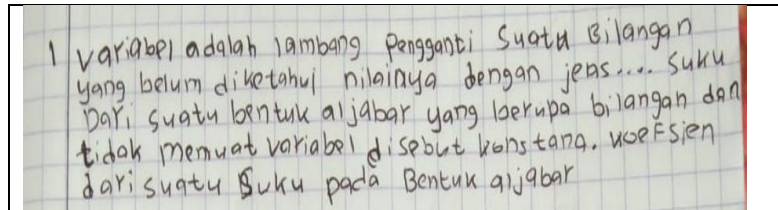 1 variabel adalah lambang Pengganti Suatu Bilangan
yang belum diketahui nilainya dengan jeas.... Suku
Dari suatu bentuk aljabar yang berupa bilangan dan
tidak memuat variabel disebut konstana. koefsien
dari suatu Suku pada Bentuk aljabar